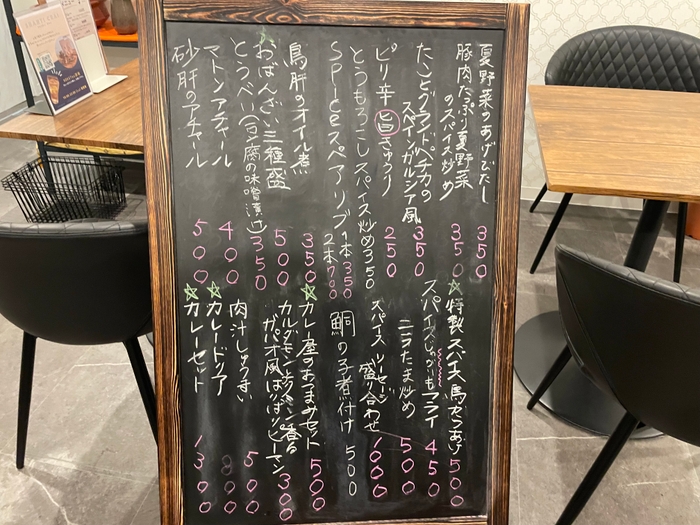 夏野菜のあげびたし 350
豚肉たっぷり夏野菜
のスパイス炒め 350
たことグランドペチカの
スペインガルシア風 350
ピリ辛旨きゅうり 250
とうもろこしスパイス炒め 350
SPiceスペアリブ 1本350
2本700
鳥肝のオイル煮 350
おばんざい三種盛 500
とうべい(豆腐の味噌漬け) 350
マトンアチャール 400
砂肝のアチャール 500
☆特製スパイス鳥からあげ 500
スパイスじゃがいもフライ 450
ニラたま炒め 500
スパイスソーセージ
盛り合わせ 1000
鯛の子煮付け 500
☆カレー屋のおつまみセット 500
カルダモンとクミン香る
ガパオ風ぱりぱりピーマン 300
肉汁しゅうまい 500
☆カレードリア 800
☆カレーセット 1300